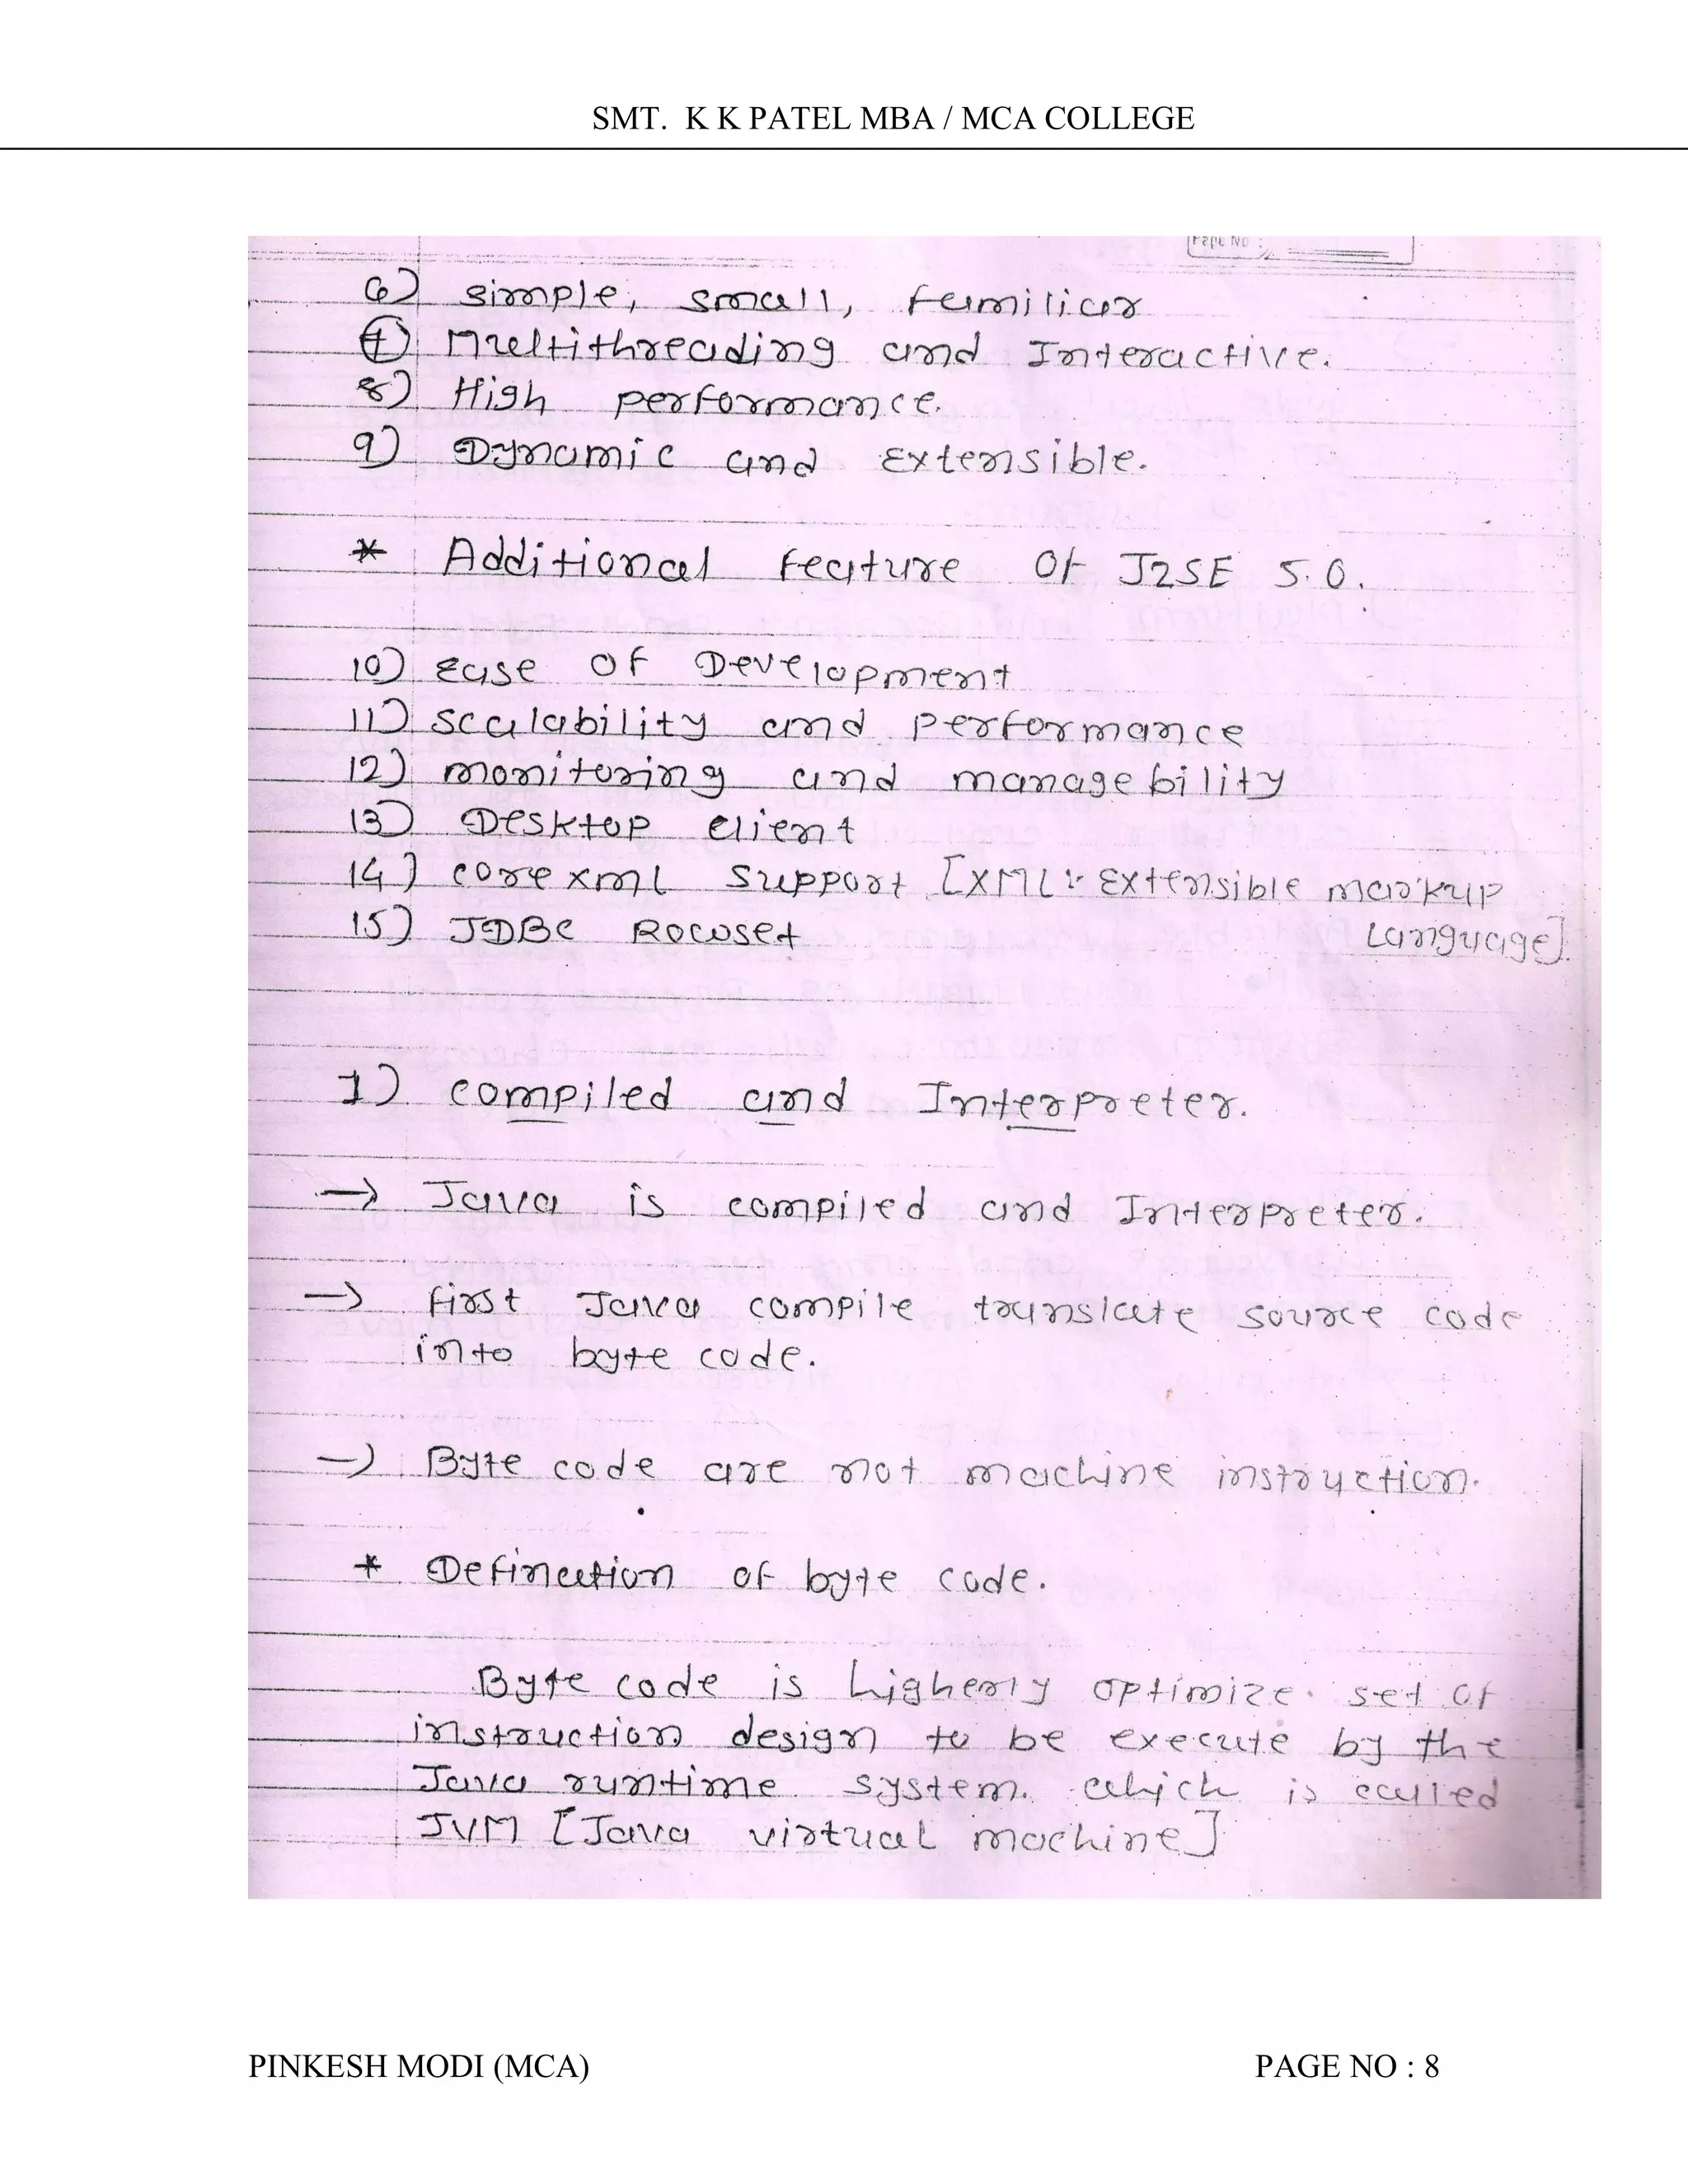 SMT. K K PATEL MBA / MCA COLLEGE
Page No :
6) simple, small, familiar
7) Multithreading and Interactive.
8) High performance.
9) Dynamic and Extensible.
* Additional feature of J2SE 5.0.
10) Ease of Development
11) scalability and performance
12) monitoring and managebility
13) Desktop client
14) core xml support [XML:- Extensible markup
Language].
15) JDBC Rocwset
1) compiled and Interpreter.
→ Java is compiled and Interpreter.
→ first Java compile translate source code
into byte code.
→ Byte code are not machine instruction.
* Defination of byte code.
Byte code is higherly optimize. set of
instruction design to be execute by the
Java runtime system. which is called
JVM [Java virtual machine]
PINKESH MODI (MCA) PAGE NO : 8